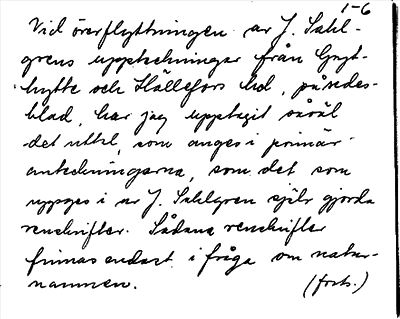 1-6
Vid överflyttningen av J. Sahl-
grens uppteckningar från Gryt-
hytte och Hällefors hd, på sedes-
blad, har jag upptagit såväl
det uttal, som anges i primär-
anteckningarna, som det som
uppges i av J. Sahlgren själv gjorda
renskrifter. Sådana renskrifter
finnas endast i fråga om natur-
namnen. (forts.)